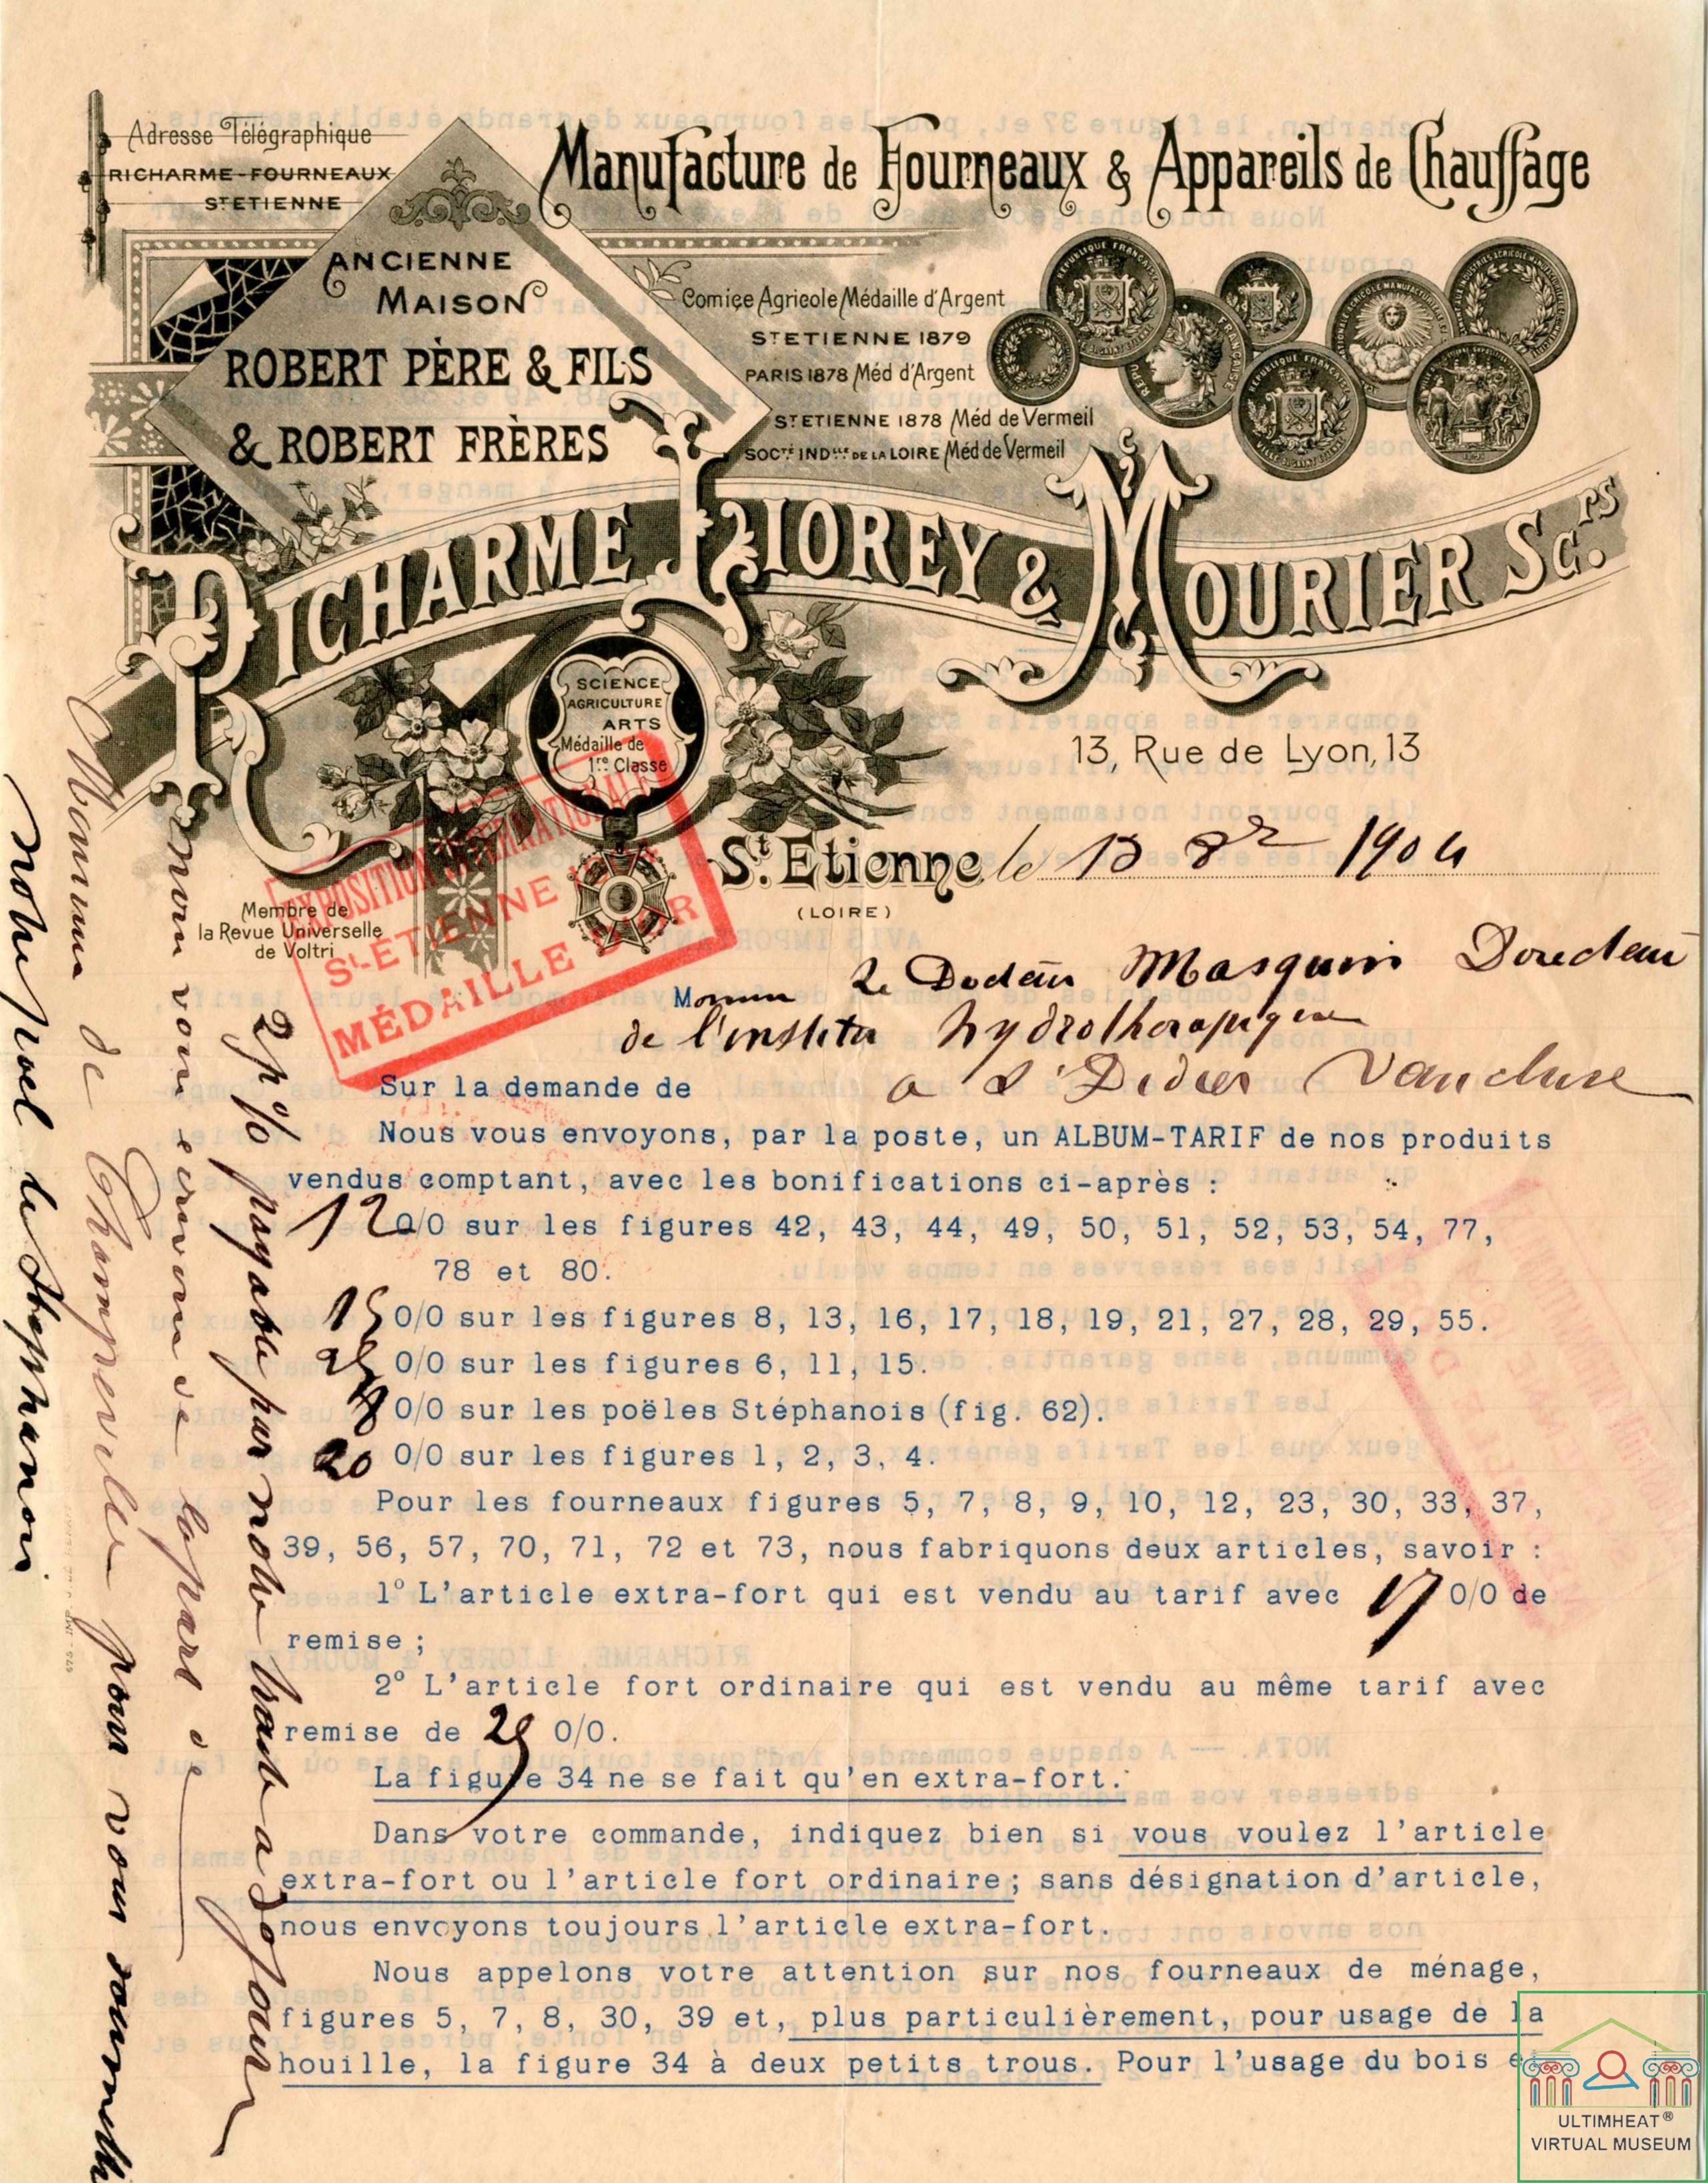 Adresse Télégraphique
RICHARME-FOURNEAUX
ST ETIENNE
Manufacture de Fourneaux & Appareils de Chauffage
ANCIENNE
MAISON
ROBERT PÈRE & FILS
& ROBERT FRÈRES
Comice Agricole Médaille d'Argent
ST ETIENNE 1879
PARIS 1878 Méd d'Argent
ST ETIENNE 1878 Méd de Vermeil
SOCTÉ INDLLE DE LA LOIRE Méd de Vermeil
RICHARME LIOREY & MOURIER Sc.rs
SCIENCE
AGRICULTURE
ARTS
Médaille de
1re Classe
13, Rue de Lyon, 13
St. Etienne le 13 8re 1904
(LOIRE)
Membre de
la Revue Universelle
de Voltri
EXPOSITION INTERNATIONALE
St-ÉTIENNE
MÉDAILLE D'OR
Le Docteur Masquin
de l'institu hydrotherapique
a St Didier Vaucluse
Sur la demande de
Nous vous envoyons, par la poste, un ALBUM-TARIF de nos produits
vendus comptant, avec les bonifications ci-après :
12 0/0 sur les figures 42, 43, 44, 49, 50, 51, 52, 53, 54, 77,
78 et 80.
15 0/0 sur les figures 8, 13, 16, 17, 18, 19, 21, 27, 28, 29, 55.
25 0/0 sur les figures 6, 11, 15.
8 0/0 sur les poëles Stéphanois (fig. 62).
20 0/0 sur les figures 1, 2, 3, 4.
Pour les fourneaux figures 5, 7, 8, 9, 10, 12, 23, 30, 33, 37,
39, 56, 57, 70, 71, 72 et 73, nous fabriquons deux articles, savoir :
1° L'article extra-fort qui est vendu au tarif avec 17 0/0 de
remise ;
2° L'article fort ordinaire qui est vendu au même tarif avec
remise de 25 0/0.
La figure 34 ne se fait qu'en extra-fort.
Dans votre commande, indiquez bien si vous voulez l'article
extra-fort ou l'article fort ordinaire ; sans désignation d'article,
nous envoyons toujours l'article extra-fort.
Nous appelons votre attention sur nos fourneaux de ménage,
figures 5, 7, 8, 30, 39 et, plus particulièrement, pour usage de la
houille, la figure 34 à deux petits trous. Pour l'usage du bois
2% payable par notre traite a 30 jour
nous vous ecrivons de la part de
Monsieur de Champvillé pour vous
notre poel le Stephanois
ULTIMHEAT®
VIRTUAL MUSEUM